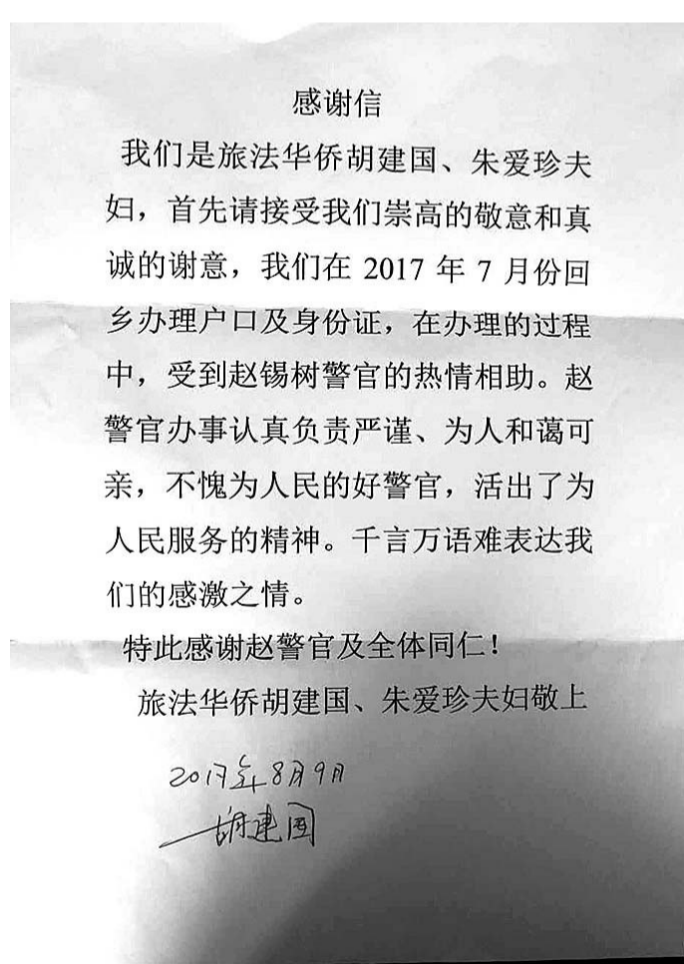 感谢信
我们是旅法华侨胡建国、朱爱珍夫
妇，首先请接受我们崇高的敬意和真
诚的谢意，我们在 2017 年 7 月份回
乡办理户口及身份证，在办理的过程
中，受到赵锡树警官的热情相助。赵
警官办事认真负责严谨、为人和蔼可
亲，不愧为人民的好警官，活出了为
人民服务的精神。千言万语难表达我
们的感激之情。
特此感谢赵警官及全体同仁！
旅法华侨胡建国、朱爱珍夫妇敬上
2017年8月9日
胡建国